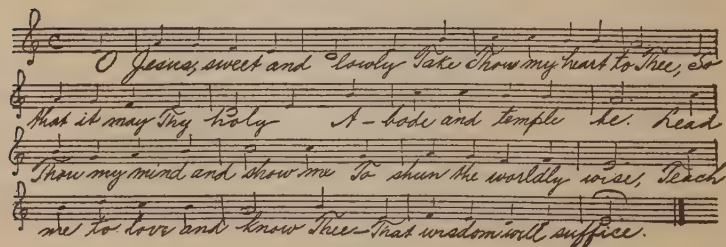 O Jesus, sweet and lowly Take Thou my heart to Thee, So
that it may Thy holy A-bode and temple be. Lead
Thou my mind and show me To shun the worldly wise, Teach
me to love and know Thee-That wisdom will suffice.